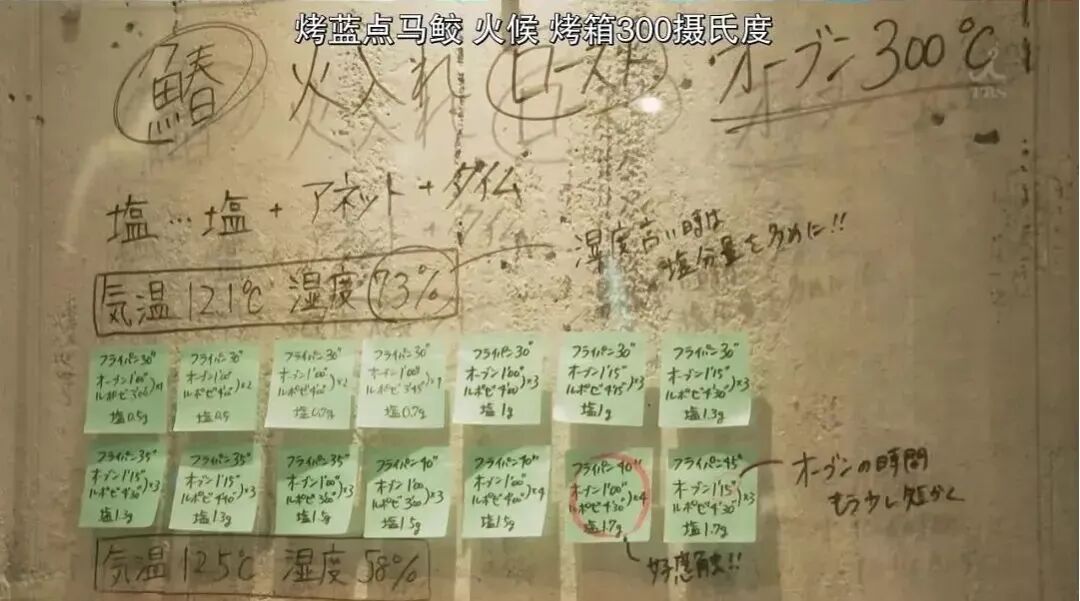 烤蓝点马鲛 火候 烤箱300摄氏度
鰆 火入れ ロースト オーブン300℃
TBS
塩…塩+アネット+タイム
気温12.1℃ 湿度73%
湿度高い時は
塩分量を多めに!!
フライパン30"
オーブン1'00"
塩0.5g
フライパン30"
オーブン1'00"
ルポゼ4'00")×2
塩0.5
フライパン30"
オーブン1'00"
ルポゼ4'00")×2
塩0.7g
フライパン30"
オーブン1'00"
ルポゼ3'45")×1
塩0.7g
フライパン30"
オーブン1'00"
ルポゼ4'00")×3
塩1g
フライパン30"
オーブン1'15"
ルポゼ4'15")×3
塩1g
フライパン30"
オーブン1'15"
ルポゼ4'30")×3
塩1.3g
フライパン35"
オーブン1'15"
ルポゼ4'30")×3
塩1.3g
フライパン35"
オーブン1'15"
ルポゼ4'40")×3
塩1.3g
フライパン35"
オーブン1'00"
ルポゼ3'30")×3
塩1.5g
フライパン40"
オーブン1'00
ルポゼ3'00")×3
塩1.5g
フライパン40"
オーブン1'00"
ルポゼ4'00")×4
塩1.5g
フライパン40"
オーブン1'00"
ルポゼ4'30")×4
塩1.7g
フライパン45"
オーブン1'15"
ルポゼ4'30")×3
塩1.7g
オーブンの時間
もう少し短かく
好感触!!
気温12.5℃ 湿度58%